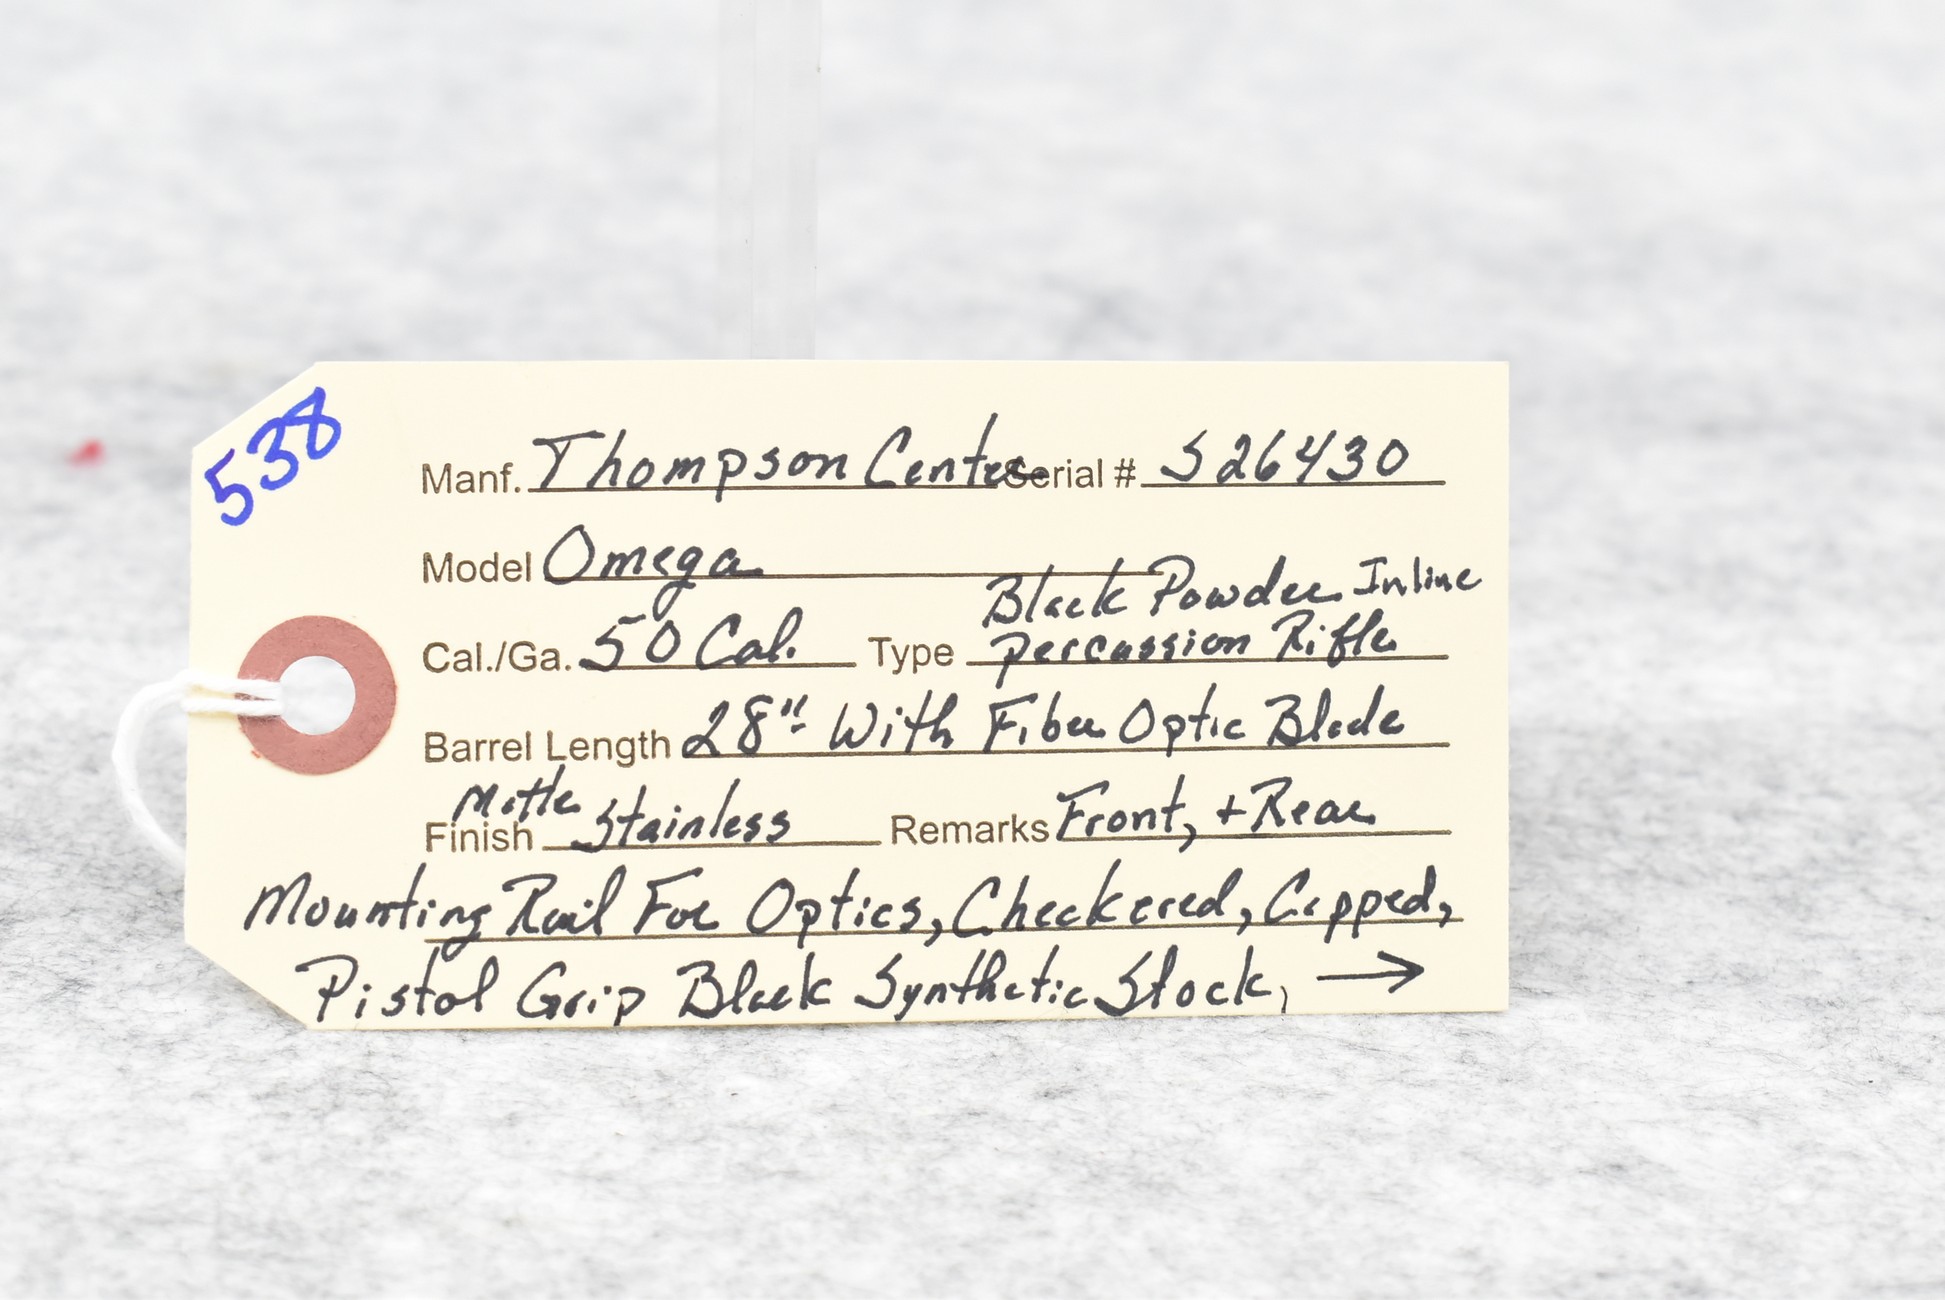 538
Manf. Thompson Center Serial # S26430
Model Omega
Cal./Ga. 50 Cal. Type Black Powder Inline Percussion Rifle
Barrel Length 28" With Fiber Optic Blade
Finish Matte Stainless Remarks Front, + Rear
Mounting Rail For Optics, Checkered, Capped,
Pistol Grip Black Synthetic Stock, →